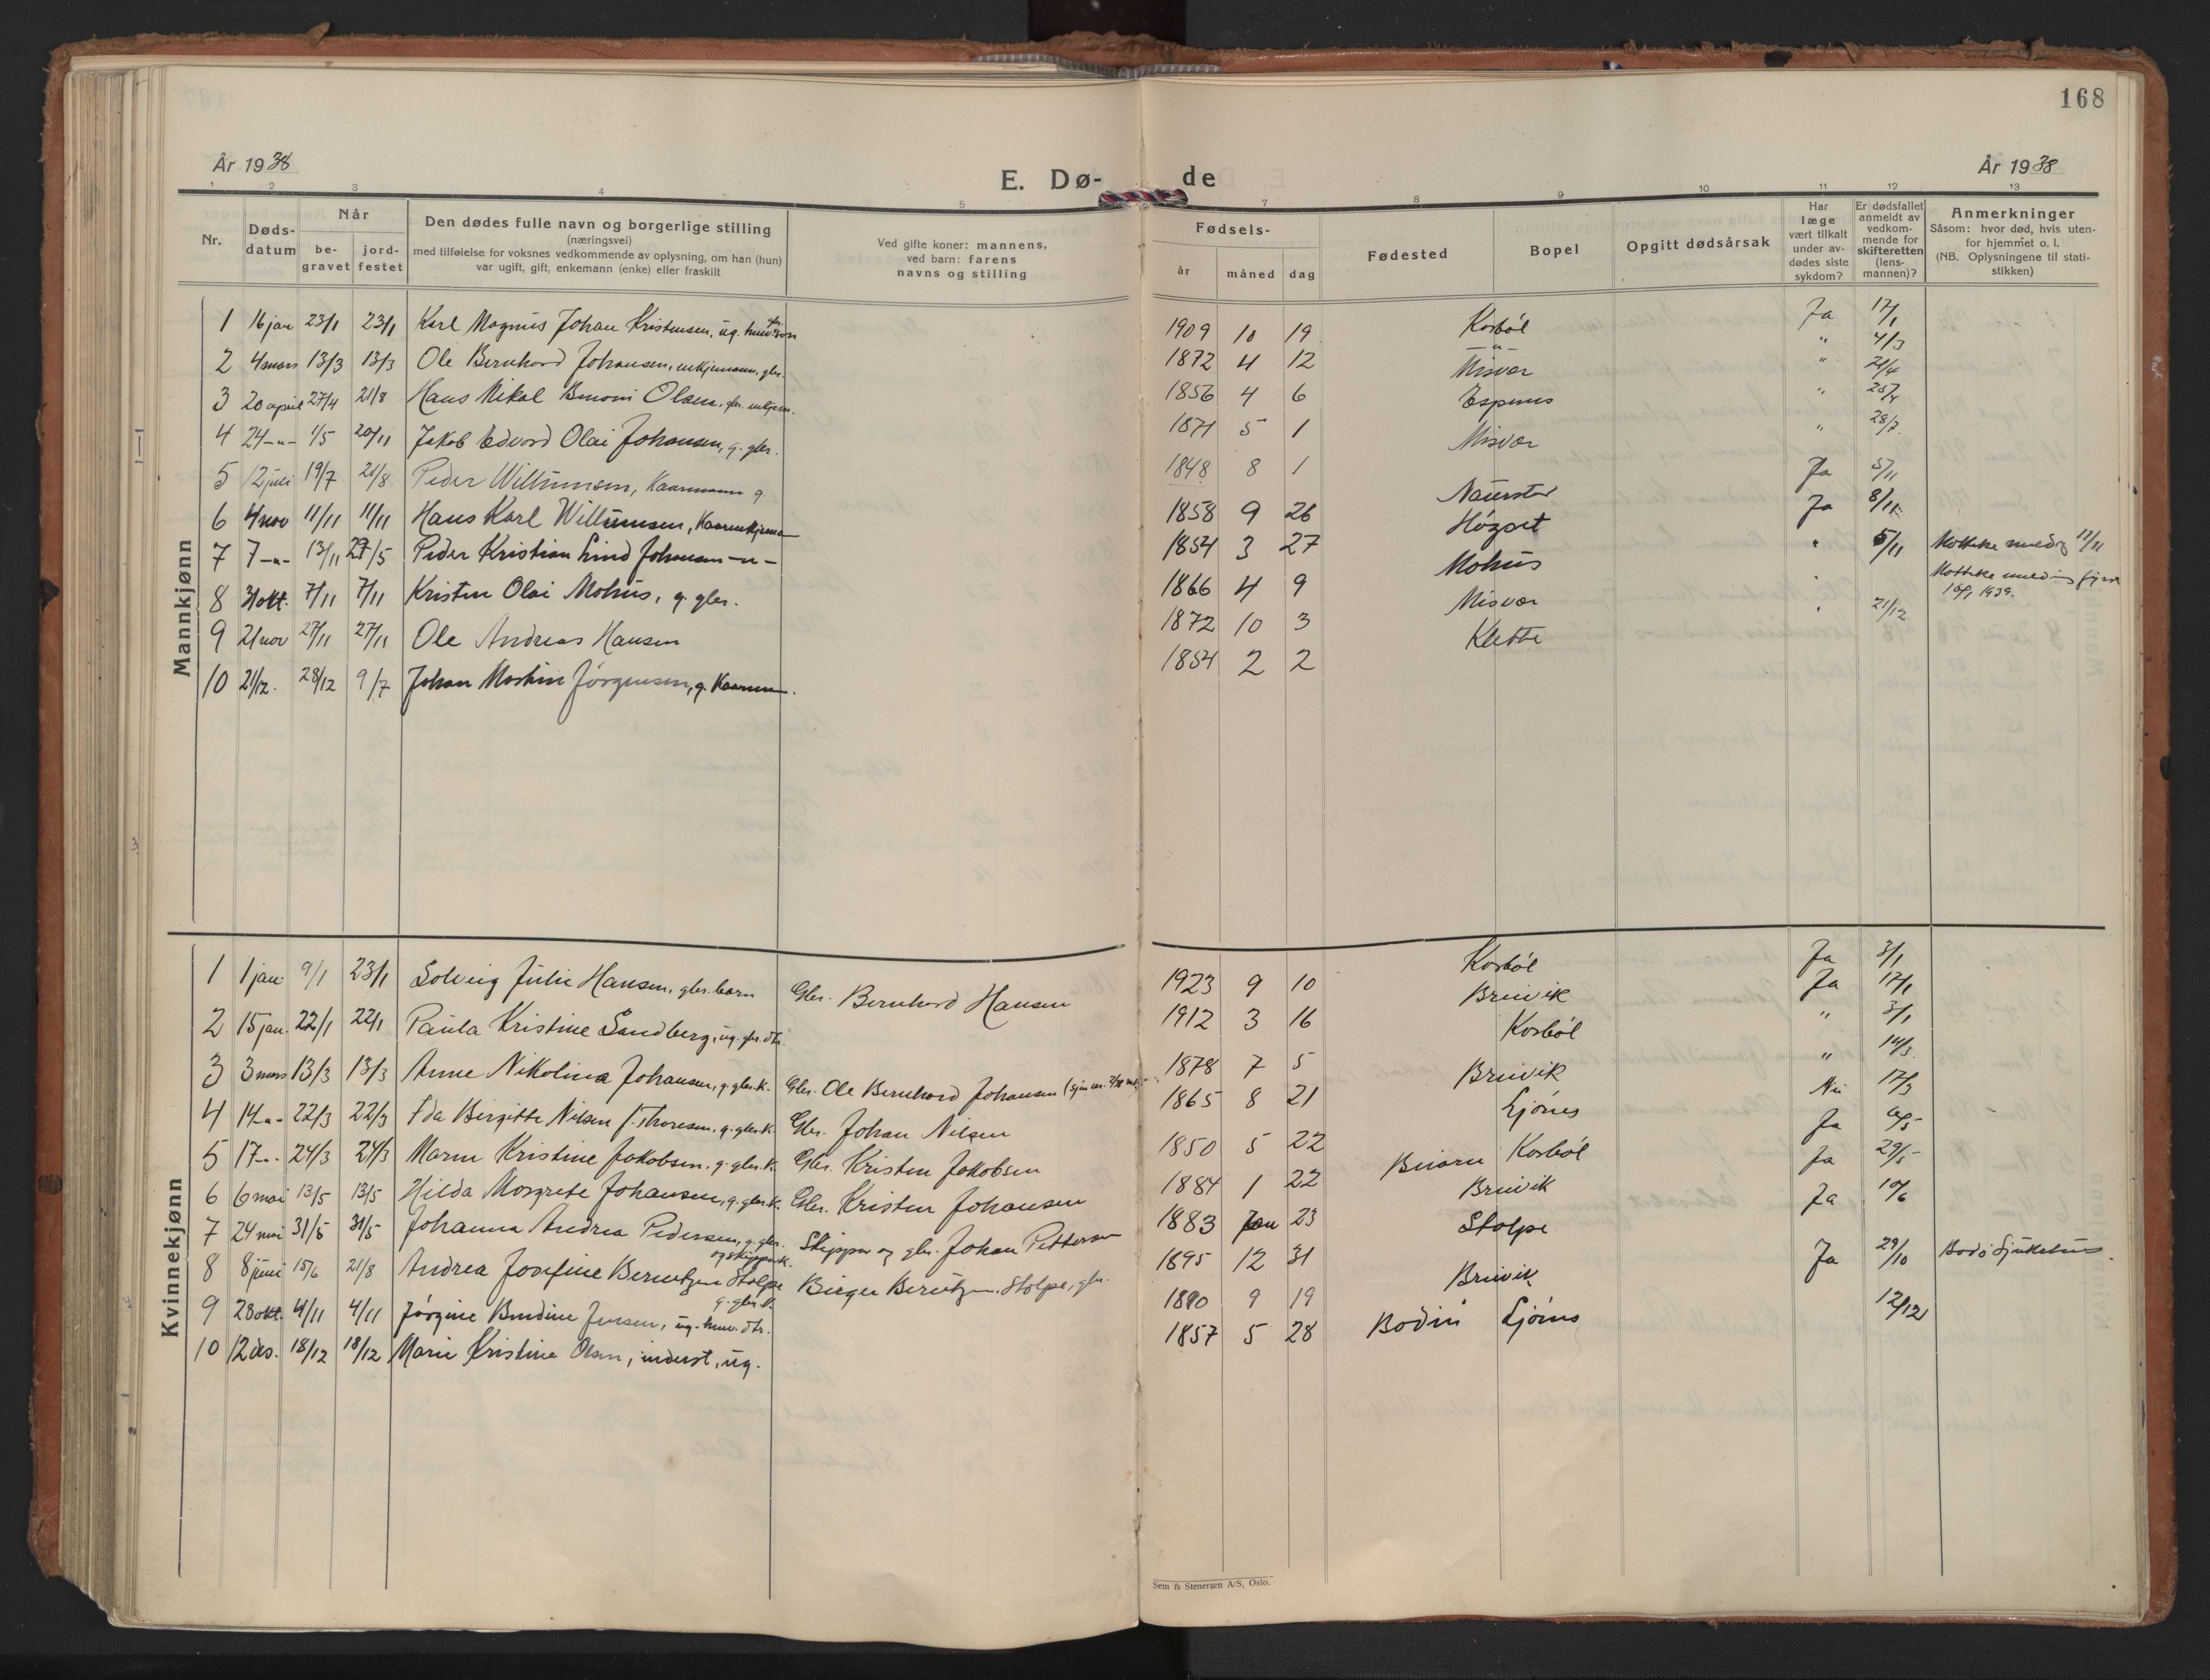 168
År 1938
E. Dø-
de
År 1938
1 2 3 4 5 7 8 9 10 11 12 13
Nr.
Døds-
datum
Når
be-
gravet
jord-
festet
Den dødes fulle navn og borgerlige stilling
(næringsvei)
med tilføielse for voksnes vedkommende av oplysning, om han (hun)
var ugift, gift, enkemann (enke) eller fraskilt
Ved gifte koner: mannens,
ved barn: farens
navns og stilling
Fødsels-
år
måned
dag
Fødested
Bopel
Opgitt dødsårsak
Har
læge
vært tilkalt
under av-
dødes siste
sykdom?
Er dødsfallet
anmeldt av
vedkom-
mende for
skifteretten
(lens-
mannen)?
Anmerkninger
Såsom: hvor død, hvis uten-
for hjemmet o. l.
(NB. Oplysningene til stati-
stikken)
Mannkjønn
1 16 jan 23/1 23/1 Karl Magnus Johan Kristensen, ug. 1909 10 19 Korbøl Ja 17/1
2 4 mars 13/3 13/3 Ole Bernhard Johansen, enkjemann, gbr. 1872 4 12 -"- " 4/3
3 20 april 27/4 21/8 Hans Nikal Benoni Olsen, gbr. enkjem. 1856 4 6 Misvær " 21/4
4 24-"- 1/5 20/11 Jakob Edvard Olai Johansen, g. gbr. 1871 5 1 Espnes " 25/4
5 12 juli 19/7 21/8 Peder Willumsen, Kaarmann g. 1848 8 1 Misvær " 28/7
6 4 nov 11/11 11/11 Hans Karl Willumsen, 1858 9 26 Naurstad Ja 5/11
7 7-"- 13/11 27/5 Peder Kristian Lind Johansen -"- 1854 3 27 Høgset Ja 8/11
8 31 okt. 7/11 7/11 Kristen Olai Mohus, g. gbr. 1866 4 9 Mohus " 5/11 11/11
9 21 nov 27/11 27/11 Ole Andreas Hansen 1872 10 3 Misvær " 1939.
10 21/12. 28/12 9/7 Johan Martin Jørgensen, g. Kaarmann. 1854 2 2 Kletta " 21/12
Kvinnekjønn
1 1 jan 9/1 23/1 Solveig Julie Hansen, gbr. barn Gbr. Bernhard Hansen 1923 9 10 Korbøl Ja 3/1
2 15 jan. 22/1 22/1 Paula Kristine Sandberg, ug. gbr. dtr. 1912 3 16 Breivik Ja 17/1
3 3 mars 13/3 13/3 Anne Nikolina Johansen, g. gbr. k. Gbr. Ole Bernhard Johansen 1878 7 5 Korbøl " 3/1
4 14-"- 22/3 22/3 Ida Birgitte Nilsen f. Thoresen, g. gbr. k. Gbr. Johan Nilsen 1865 8 21 Breivik " 14/3
5 17-"- 24/3 24/3 Maren Kristine Jakobsen, g. gbr. k. Gbr. Kristen Jakobsen 1850 5 22 Ljønes Nei 17/3
6 6 mai 13/5 13/5 Hilda Margrete Johansen, g. gbr. k. Gbr. Kristen Johansen 1884 1 22 Beiarn Korbøl Ja
7 24 mai 31/5 31/5 Johanna Andrea Pedersen, g. gbr. og skipper k. Skipper og gbr. Johan Pettersen 1883 Jan 23 Breivik Ja 29/5
8 8 juni 15/6 21/8 Andrea Josefine Berntzen Stolpe g. gbr. k. Birger Berntzen Stolpe, gbr. 1895 12 31 Stolpe Ja 10/6
9 28 okt. 4/11 4/11 Jørgine Berdine Jensen, ug. 1890 9 19 Breivik Ja 29/10 Bodø Sjukehus.
10 12 des. 18/12 18/12 Marie Kristine Olsen, inderst, ug. 1857 5 28 Bodin Ljønes 12/12
Sem & Stenersen A/S, Oslo.